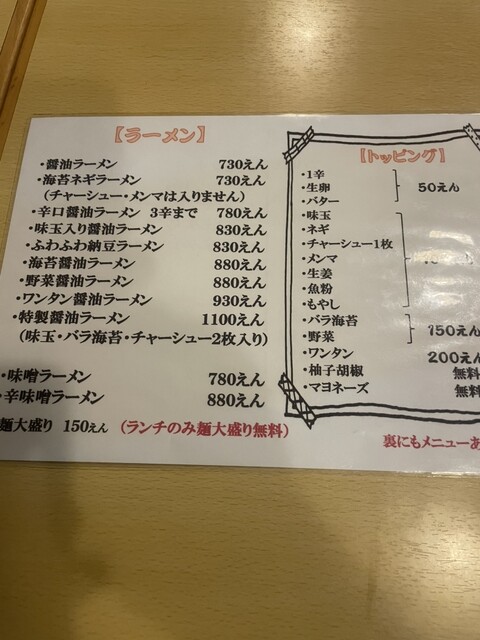 【ラーメン】
・醤油ラーメン 730えん
・海苔ネギラーメン 730えん
（チャーシュー・メンマは入りません）
・辛口醤油ラーメン 3辛まで 780えん
・味玉入り醤油ラーメン 830えん
・ふわふわ納豆ラーメン 830えん
・海苔醤油ラーメン 880えん
・野菜醤油ラーメン 880えん
・ワンタン醤油ラーメン 930えん
・特製醤油ラーメン 1100えん
（味玉・バラ海苔・チャーシュー2枚入り）
・味噌ラーメン 780えん
・辛味噌ラーメン 880えん
麺大盛り 150えん （ランチのみ麺大盛り無料）
【トッピング】
・1辛
・生卵 50えん
・バター
・味玉
・ネギ
・チャーシュー1枚
・メンマ
・生姜
・魚粉
・もやし
・バラ海苔
・野菜 150えん
・ワンタン 200えん
・柚子胡椒 無料
・マヨネーズ 無料
裏にもメニューあ